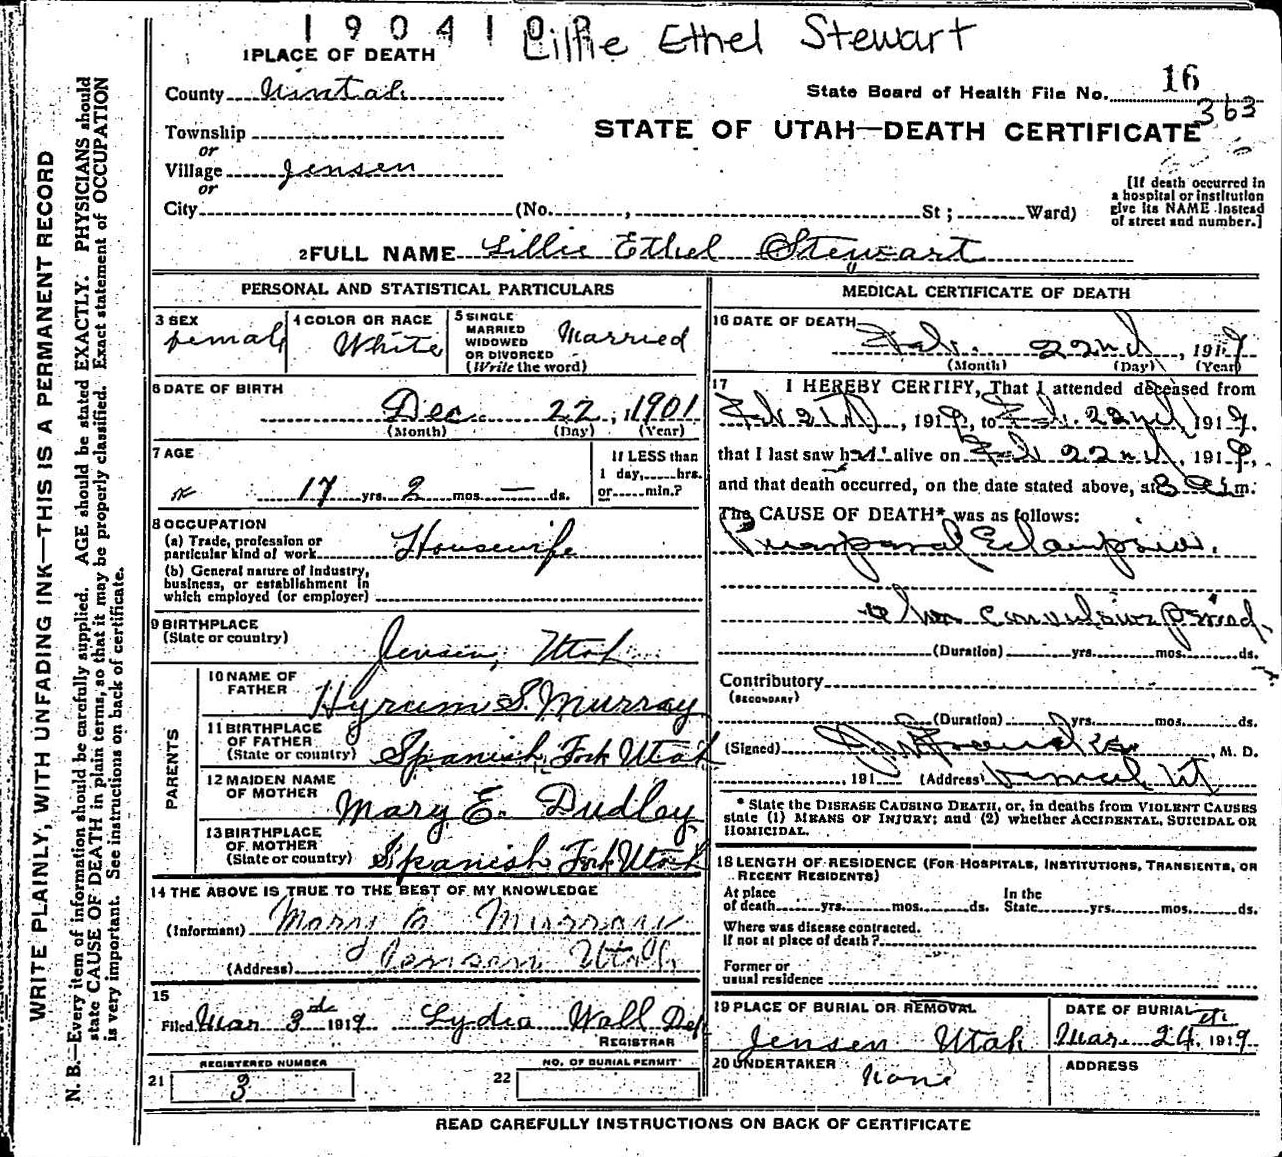 1904100
Lillie Ethel Stewart
1 PLACE OF DEATH
County Uintah
State Board of Health File No. 16
363
Township
or
STATE OF UTAH—DEATH CERTIFICATE
Village Jensen
or
City (No. , St ; Ward)
[If death occurred in
a hospital or institution
give its NAME instead
of street and number.]
2 FULL NAME Lillie Ethel Stewart
PERSONAL AND STATISTICAL PARTICULARS
3 SEX
Female
4 COLOR OR RACE
White
5 SINGLE
MARRIED
WIDOWED
OR DIVORCED
(Write the word)
Married
6 DATE OF BIRTH
Dec 22, 1901
(Month) (Day) (Year)
7 AGE
17 yrs. 2 mos. — ds.
If LESS than
1 day, hrs.
or min.?
8 OCCUPATION
(a) Trade, profession or
particular kind of work Housewife
(b) General nature of industry,
business, or establishment in
which employed (or employer)
9 BIRTHPLACE
(State or country)
Jensen, Utah
PARENTS
10 NAME OF
FATHER
Hyrum S. Murray
11 BIRTHPLACE
OF FATHER
(State or country) Spanish Fork Utah
12 MAIDEN NAME
OF MOTHER
Mary E. Dudley
13 BIRTHPLACE
OF MOTHER
(State or country) Spanish Fork Utah
14 THE ABOVE IS TRUE TO THE BEST OF MY KNOWLEDGE
(Informant) Mary E Murray
(Address) Jensen Utah
15
Filed Mar 3rd 1919 Lydia Wall Dep
REGISTRAR
REGISTERED NUMBER
21 3
NO. OF BURIAL PERMIT
22
MEDICAL CERTIFICATE OF DEATH
16 DATE OF DEATH
Feb. 22nd, 1919
(Month) (Day) (Year)
17 I HEREBY CERTIFY, That I attended deceased from
Feb , 1919, to Feb. 22nd, 1919.
that I last saw her alive on Feb 22nd, 1919,
and that death occurred, on the date stated above, at 8 a.m.
The CAUSE OF DEATH* was as follows:
Puerperal Eclampsia.
convulsive period
(Duration) yrs. mos. ds.
Contributory
(SECONDARY)
(Duration) yrs. mos. ds.
(Signed) M. D.
191 (Address) Vernal Ut
* State the DISEASE CAUSING DEATH, or, in deaths from VIOLENT CAUSES
state (1) MEANS OF INJURY; and (2) whether ACCIDENTAL, SUICIDAL OR
HOMICIDAL.
18 LENGTH OF RESIDENCE (FOR HOSPITALS, INSTITUTIONS, TRANSIENTS, OR
RECENT RESIDENTS)
At place
of death yrs. mos. ds.
In the
State yrs. mos. ds.
Where was disease contracted.
If not at place of death?
Former or
usual residence
19 PLACE OF BURIAL OR REMOVAL
Jensen Utah
DATE OF BURIAL
Mar. 24th, 1919
20 UNDERTAKER
None
ADDRESS
READ CAREFULLY INSTRUCTIONS ON BACK OF CERTIFICATE
WRITE PLAINLY, WITH UNFADING INK—THIS IS A PERMANENT RECORD
N. B.—Every item of information should be carefully supplied. AGE should be stated EXACTLY. PHYSICIANS should
state CAUSE OF DEATH in plain terms, so that it may be properly classified. Exact statement of OCCUPATION
is very important. See instructions on back of certificate.